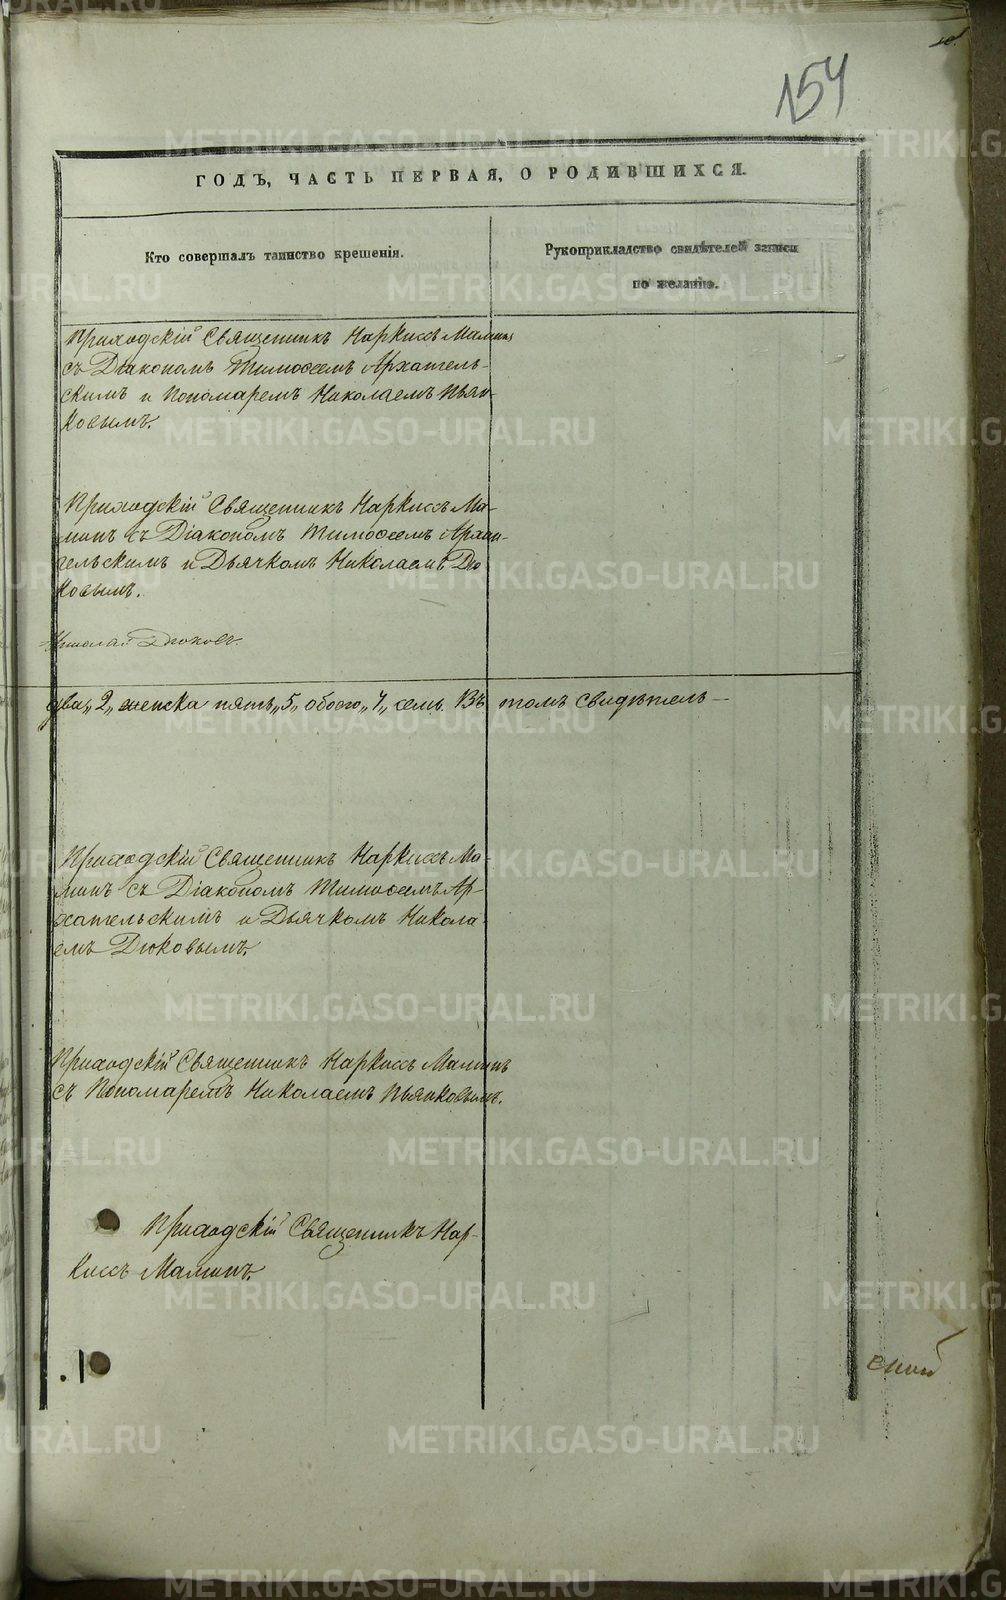 154
ГОДЪ, ЧАСТЬ ПЕРВАЯ, О РОДИВШИХСЯ.
Кто совершалъ таинство крещенія.
Рукоприкладство свидѣтелей записи
по желанію.
Приходскій Священникъ Наркиссъ Маминъ
съ Діакономъ Тимофеемъ Архангель-
скимъ и Пономаремъ Николаемъ Пьян-
ковымъ.
Приходскій Священникъ Наркиссъ Ма-
минъ съ Діакономъ Тимофеемъ Архан-
гельскимъ и Дьячкомъ Николаемъ Дю
ковымъ.
Николай Дюковъ.
два „2„ женска пять „5„ обоего „7„ семь. Въ томъ свидѣтель-
Приходскій Священникъ Наркиссъ Ма-
минъ съ Діакономъ Тимофеемъ Ар-
хангельскимъ и Дьячкомъ Никола-
емъ Дюковымъ.
Приходскій Священникъ Наркиссъ Маминъ
съ Пономаремъ Николаемъ Пьянковымъ.
Приходскій Священникъ Нар-
киссъ Маминъ.
METRIKI.GASO-URAL.RU